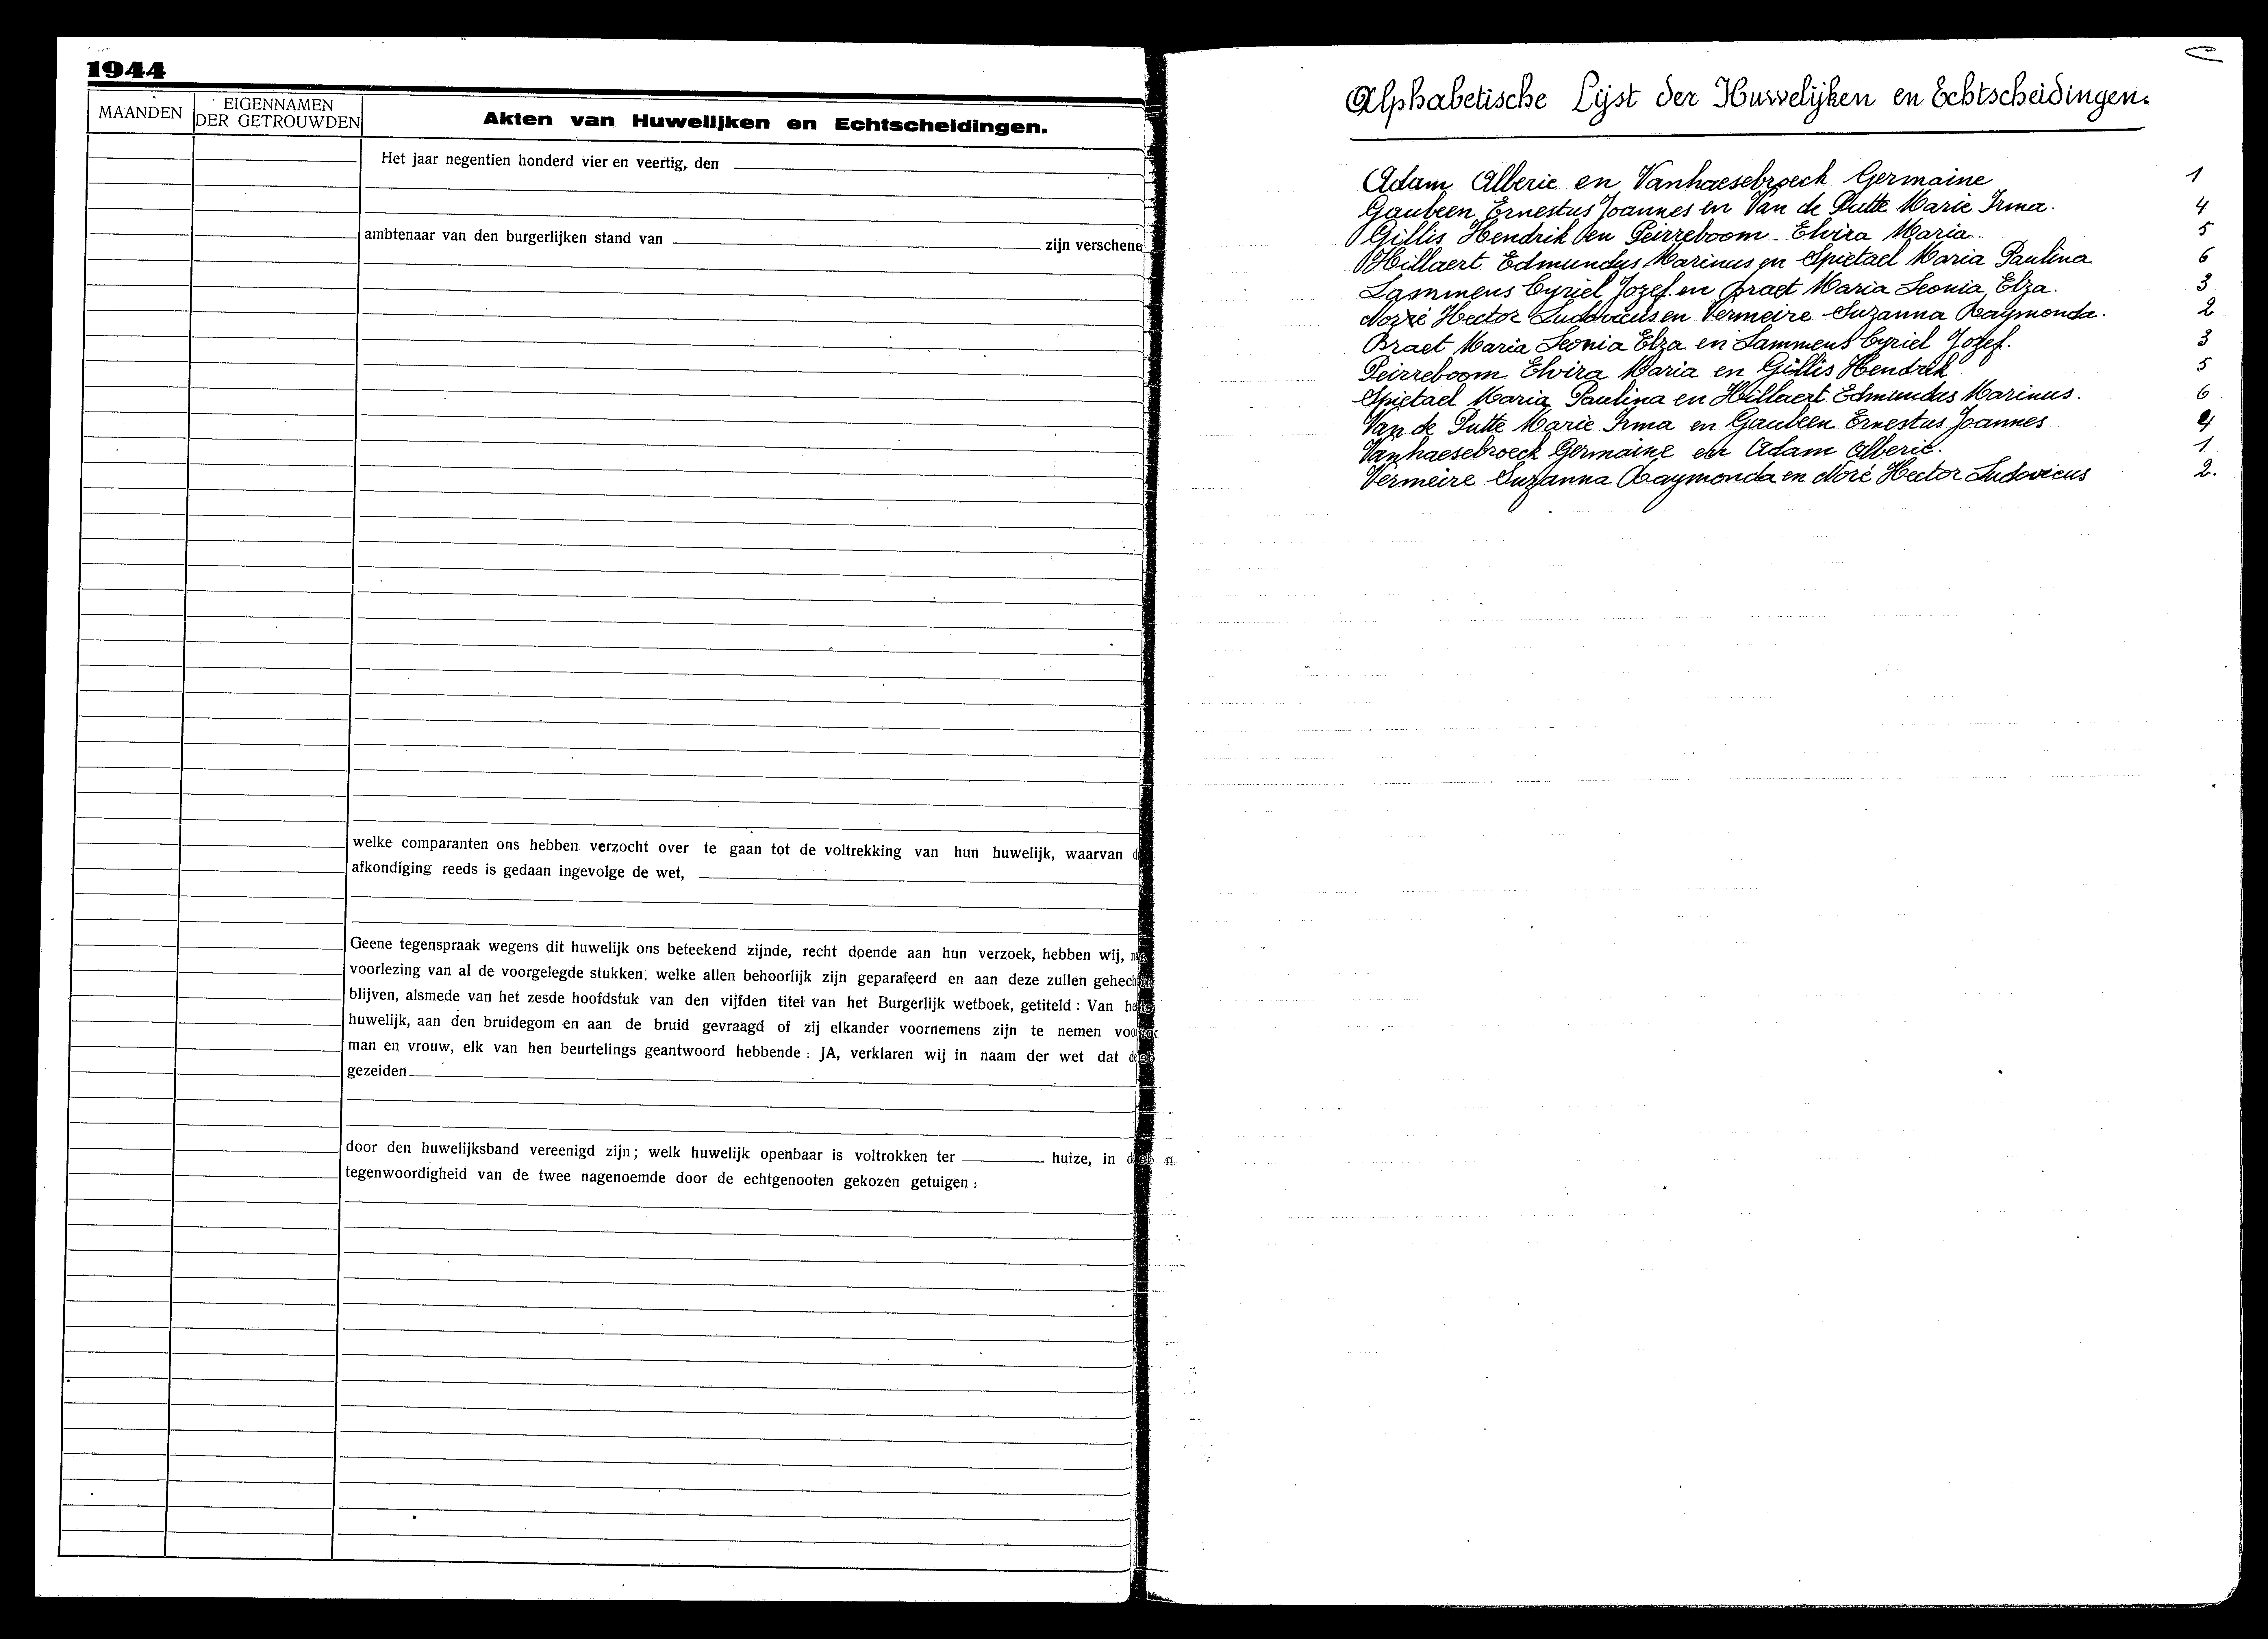 1944
MAANDEN
EIGENNAMEN
DER GETROUWDEN
Akten van Huwelijken en Echtscheidingen.
Het jaar negentien honderd vier en veertig, den
ambtenaar van den burgerlijken stand van zijn verschene
welke comparanten ons hebben verzocht over te gaan tot de voltrekking van hun huwelijk, waarvan d
afkondiging reeds is gedaan ingevolge de wet,
Geene tegenspraak wegens dit huwelijk ons beteekend zijnde, recht doende aan hun verzoek, hebben wij,
voorlezing van al de voorgelegde stukken, welke allen behoorlijk zijn geparafeerd en aan deze zullen gehech
blijven, alsmede van het zesde hoofdstuk van den vijfden titel van het Burgerlijk wetboek, getiteld : Van he
huwelijk, aan den bruidegom en aan de bruid gevraagd of zij elkander voornemens zijn te nemen voo
man en vrouw, elk van hen beurtelings geantwoord hebbende : JA, verklaren wij in naam der wet dat d
gezeiden
door den huwelijksband vereenigd zijn ; welk huwelijk openbaar is voltrokken ter huize, in d
tegenwoordigheid van de twee nagenoemde door de echtgenooten gekozen getuigen :
Alphabetische Lijst der Huwelijken en Echtscheidingen.
Adam Alberic en Vanhaesebroeck Germaine 1
Gaubeen Ernestus Joannes en Van de Putte Marie Irma. 4
Gillis Hendrik en Peirreboom Elvira Maria. 5
Hillaert Edmundus Marinus en Spietael Maria Paulina 6
Lammens Cyriel Jozef en Braet Maria Leonia Elza. 3
Norré Hector Ludovicus en Vermeire Suzanna Raymonda. 2
Braet Maria Leonia Elza en Lammens Cyriel Jozef. 3
Peirreboom Elvira Maria en Gillis Hendrik 5
Spietael Maria Paulina en Hillaert Edmundus Marinus. 6
Van de Putte Marie Irma en Gaubeen Ernestus Joannes 4
Vanhaesebroeck Germaine en Adam Alberic. 1
Vermeire Suzanna Raymonda en Noré Hector Ludovicus 2.